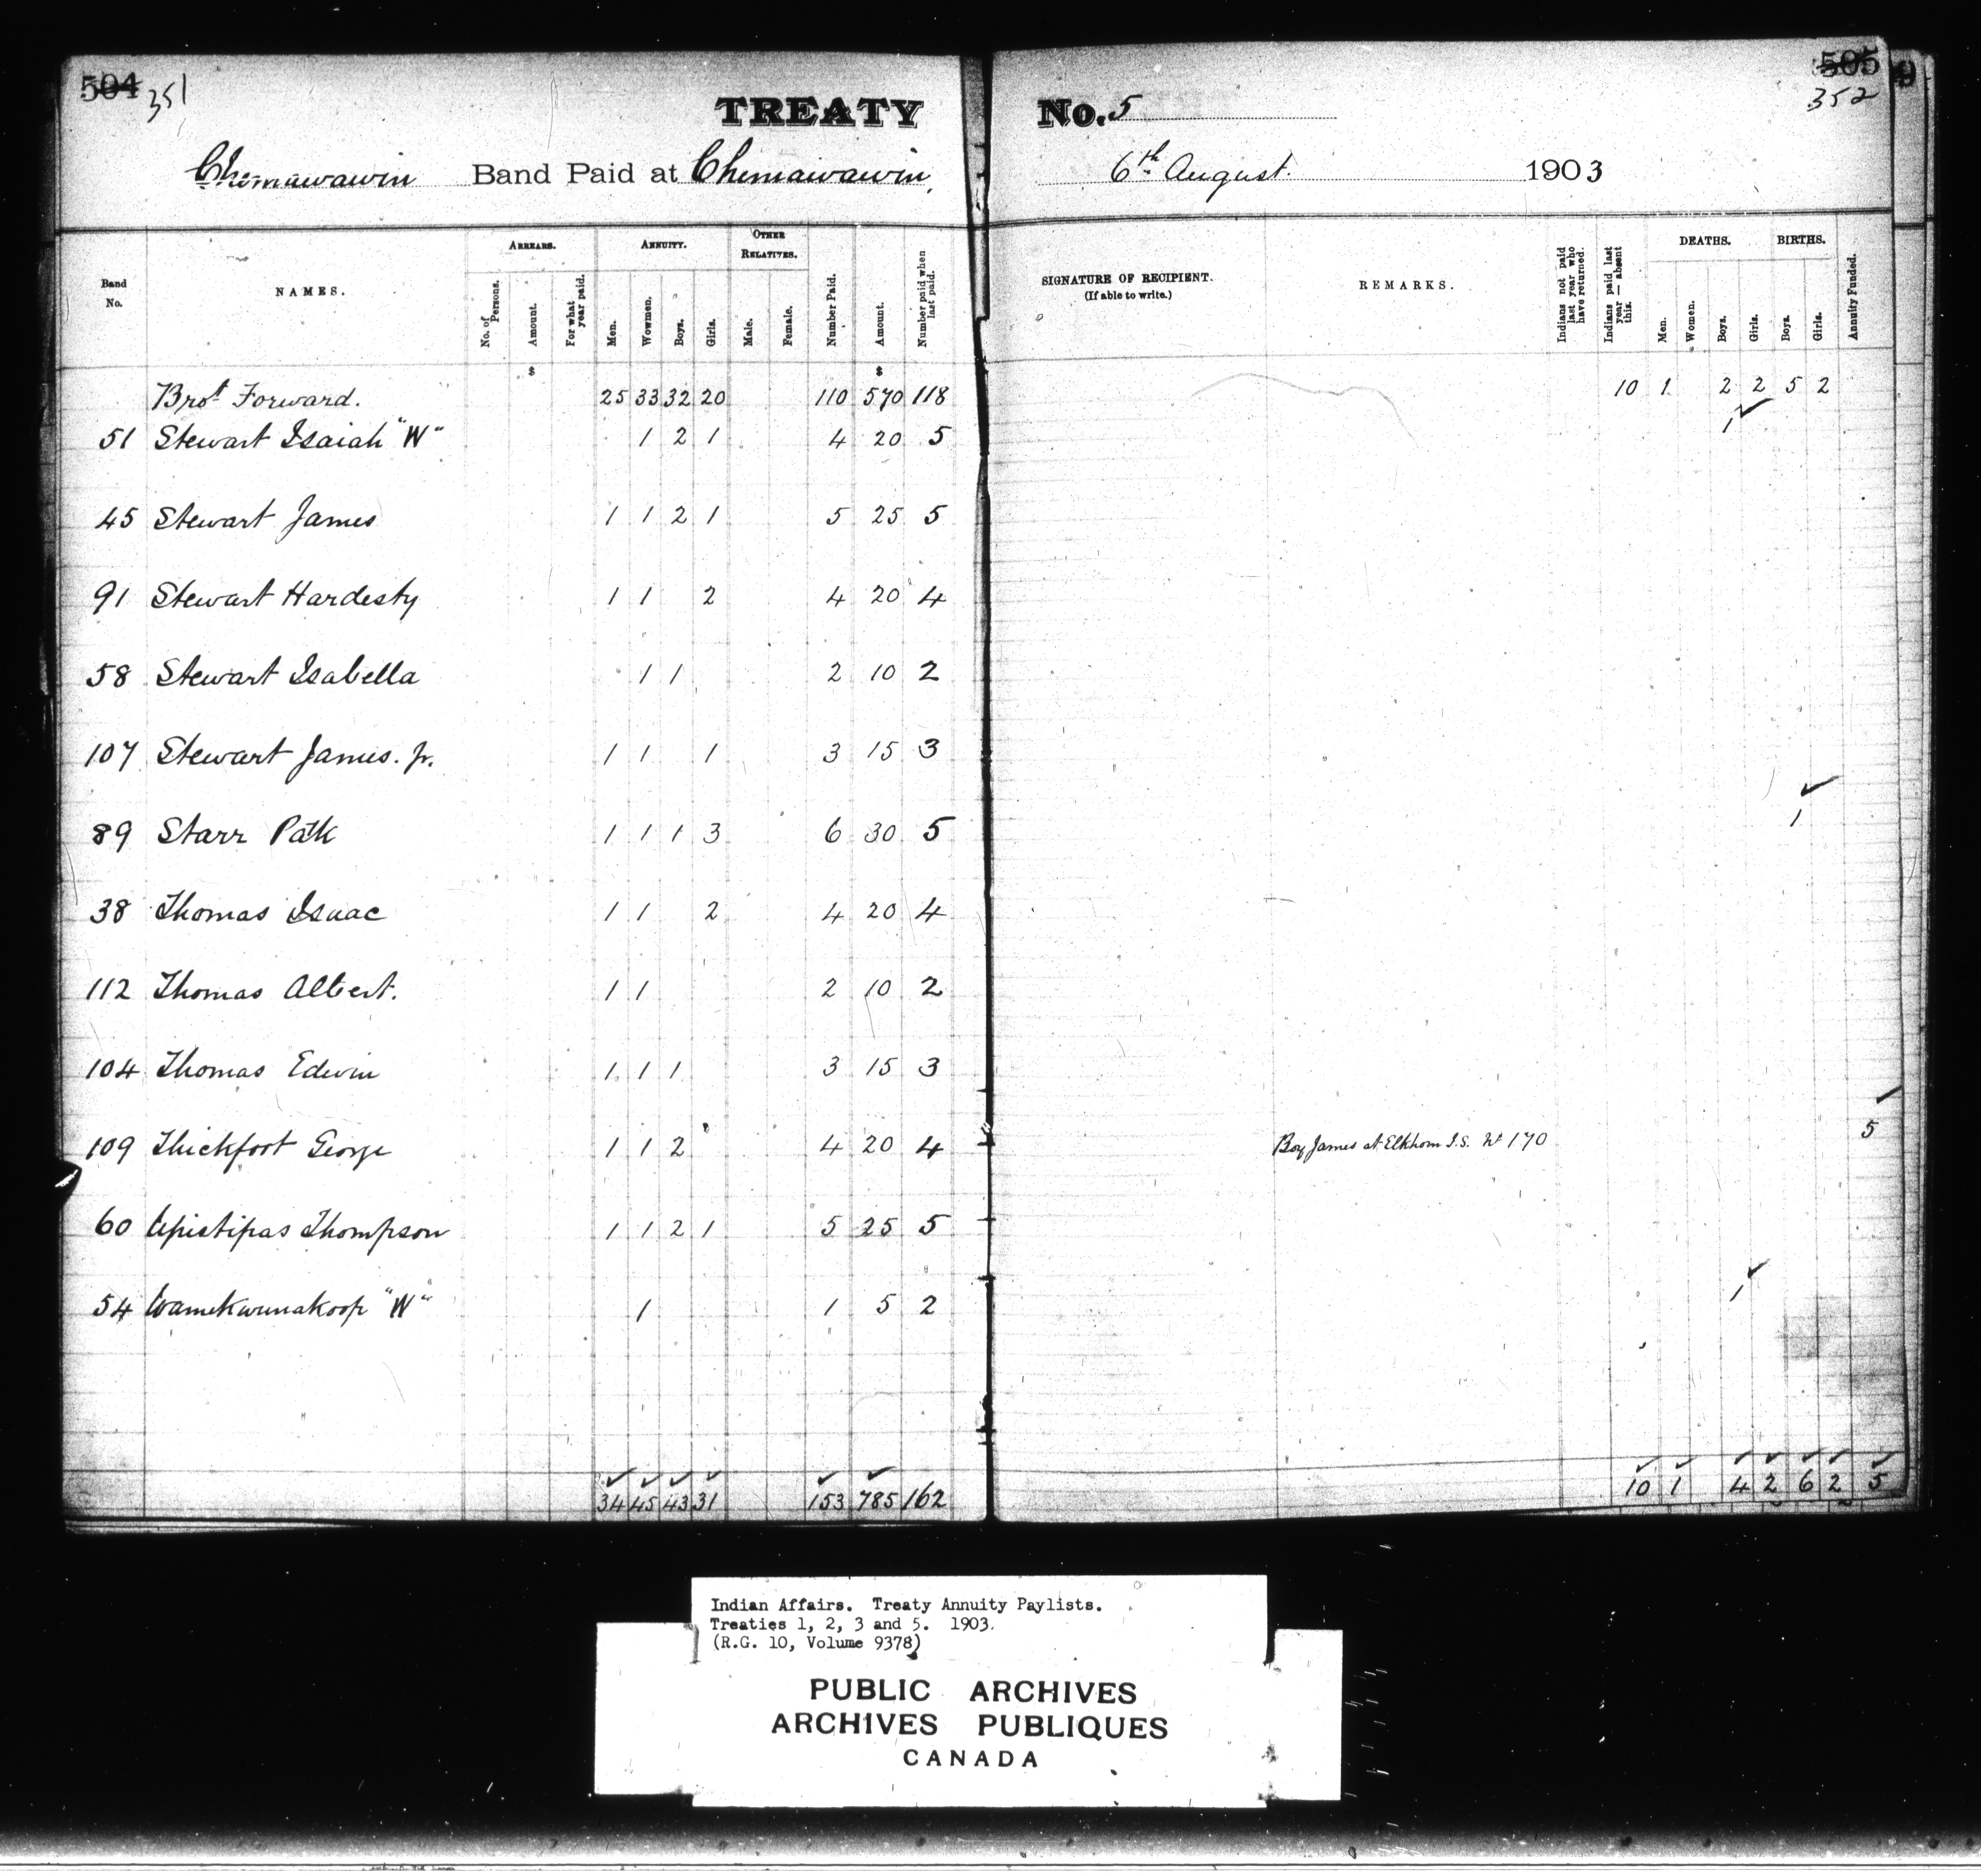 504 351
TREATY No. 5
505
352
Chemawawin Band Paid at Chemawawin, 6th August. 1903
Band No.
NAMES.
ARREARS.
No. of Persons.
Amount.
For what year paid.
ANNUITY.
Men.
Wowmen.
Boys.
Girls.
OTHER RELATIVES.
Male.
Female.
Number Paid.
Amount.
Number paid when last paid.
SIGNATURE OF RECIPIENT.
(If able to write.)
REMARKS.
Indians not paid last year who have returned.
Indians paid last year — absent this.
DEATHS.
Men.
Women.
Boys.
Girls.
BIRTHS.
Boys.
Girls.
Annuity Funded.
$ $
Brot Forward. 25 33 32 20 110 570 118 10 1 2 2 5 2
51 Stewart Isaiah "W" 1 2 1 4 20 5 1 ✓
45 Stewart James 1 1 2 1 5 25 5
91 Stewart Hardesty 1 1 2 4 20 4
58 Stewart Isabella 1 1 2 10 2
107 Stewart James. Jr. 1 1 1 3 15 3
89 Starr Patk 1 1 1 3 6 30 5 1 ✓
38 Thomas Isaac 1 1 2 4 20 4
112 Thomas Albert. 1 1 2 10 2
104 Thomas Edwin 1 1 1 3 15 3
109 Thickfoot George 1 1 2 4 20 4 Boy James at Elkhorn I.S. No 170 5 ✓
60 Apistipas Thompson 1 1 2 1 5 25 5
54 Wamekwunakoop "W" 1 1 5 2 1 ✓
34 45 43 31 153 785 162 10 1 4 2 6 2 5
Indian Affairs. Treaty Annuity Paylists.
Treaties 1, 2, 3 and 5. 1903.
(R.G. 10, Volume 9378)
PUBLIC ARCHIVES
ARCHIVES PUBLIQUES
CANADA